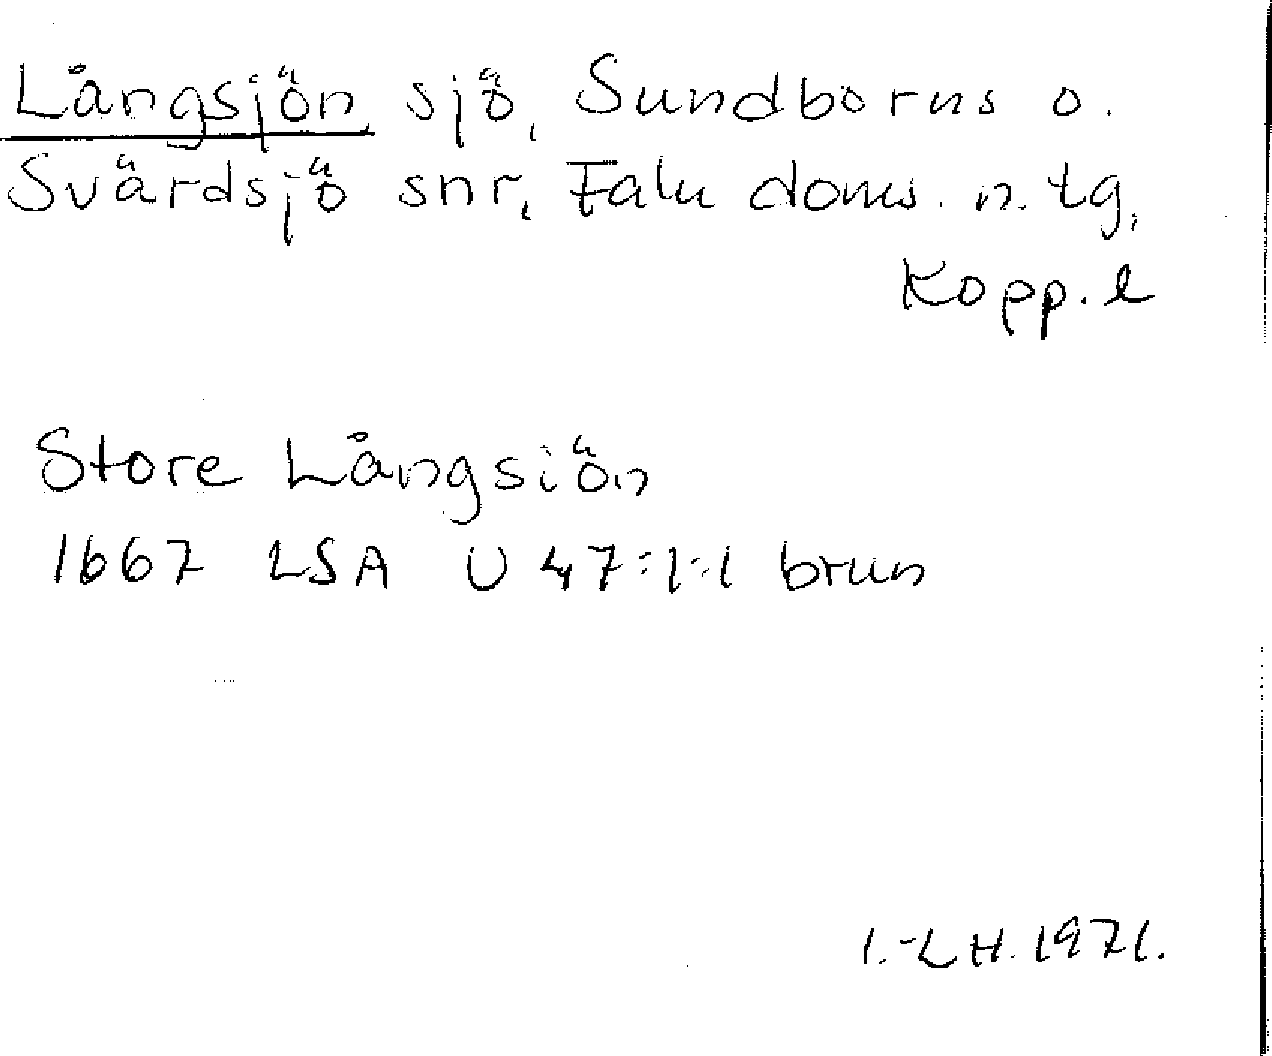 Långsjön sjö, Sundborns o.
Svärdsjö snr, Falu doms. n. tg,
Kopp. l
Store Långsiön
1667 LSA U 47:1:1 brun
I.-L H. 1971.